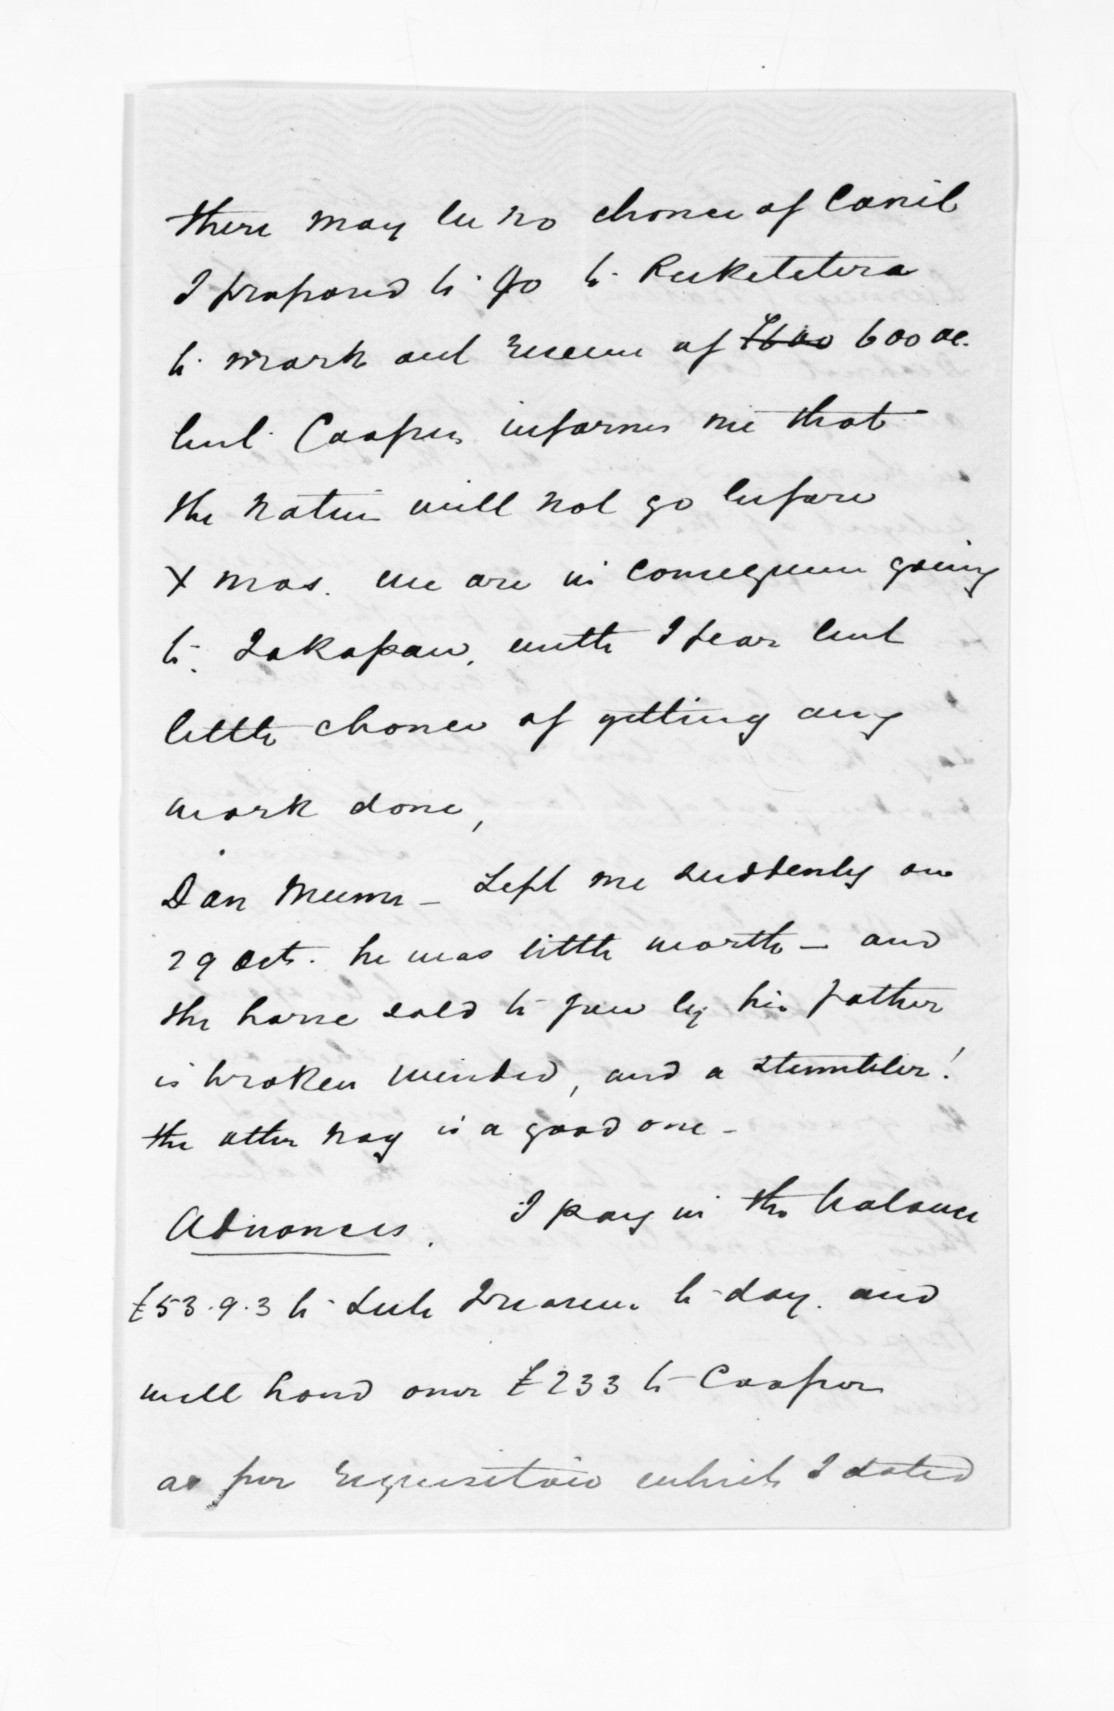 there may be no chance of Cavil
I proposed to go to Puketitiri
to mark out reserve of ~~£600~~ 600 ac.
but Cooper informs me that
the natives will not go before
Xmas. we are in consequence going
to Takapau, with I fear but
little chance of getting any
work done,
Dan Munn - Left me suddenly on
29 Oct. he was little worth - and
the horse sold to you by his father
is broken winded, and a stumbler!
the other nag is a good one -
Advances. I pay in the balance
£53.9.3 to Sub Treasury to-day. and
will hand over £233 to Cooper
as per requisition which I dated